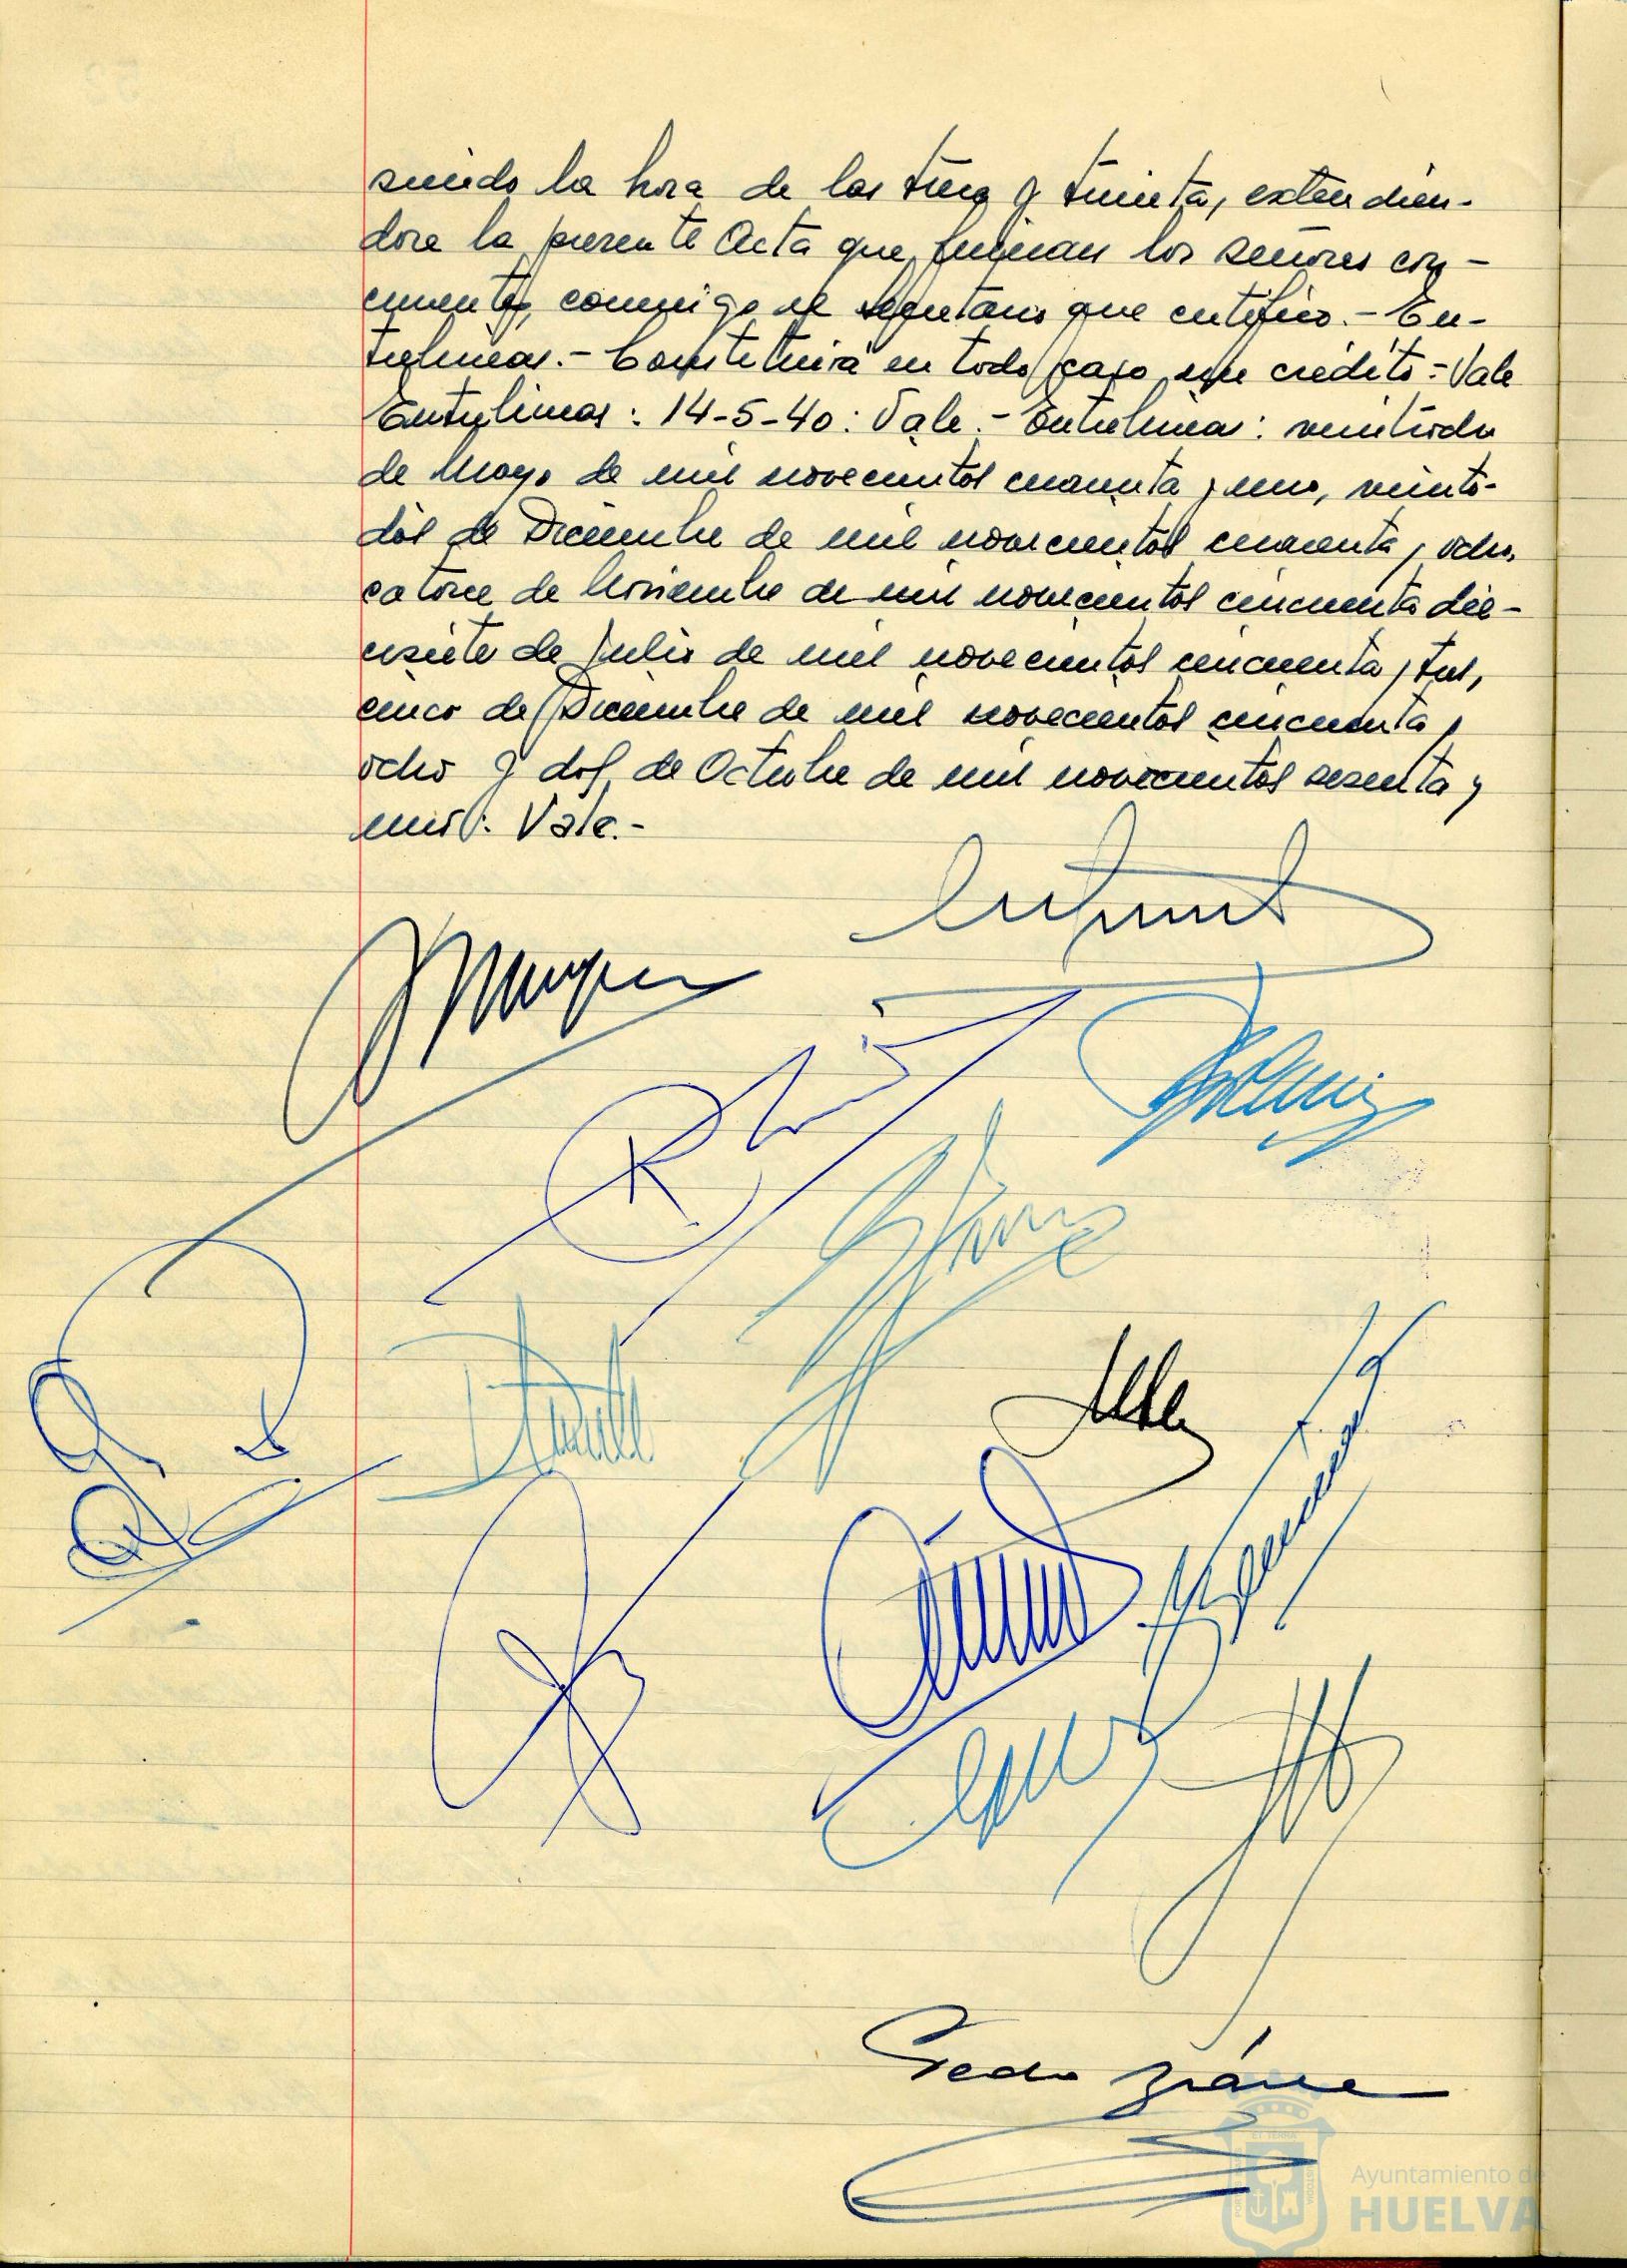 siendo la hora de las trece y treinta, extendién-
dose la presente Acta que firman los señores con-
currentes, conmigo el Secretario que certifico.- En-
trelíneas.- Constituirá en todo caso un crédito = Vale
Entrelíneas: 14-5-40: Vale.- Entrelíneas: veintidos
de Mayo de mil novecientos cuarenta y uno, veinti-
dós de Diciembre de mil novecientos cuarenta y ocho,
catorce de Noviembre de mil novecientos cincuenta die-
cisiete de Julio de mil novecientos cincuenta y tres,
cinco de Diciembre de mil novecientos cincuenta y
ocho y dos de Octubre de mil novecientos sesenta y
uno: Vale.-
Pedro
Ayuntamiento de
HUELVA